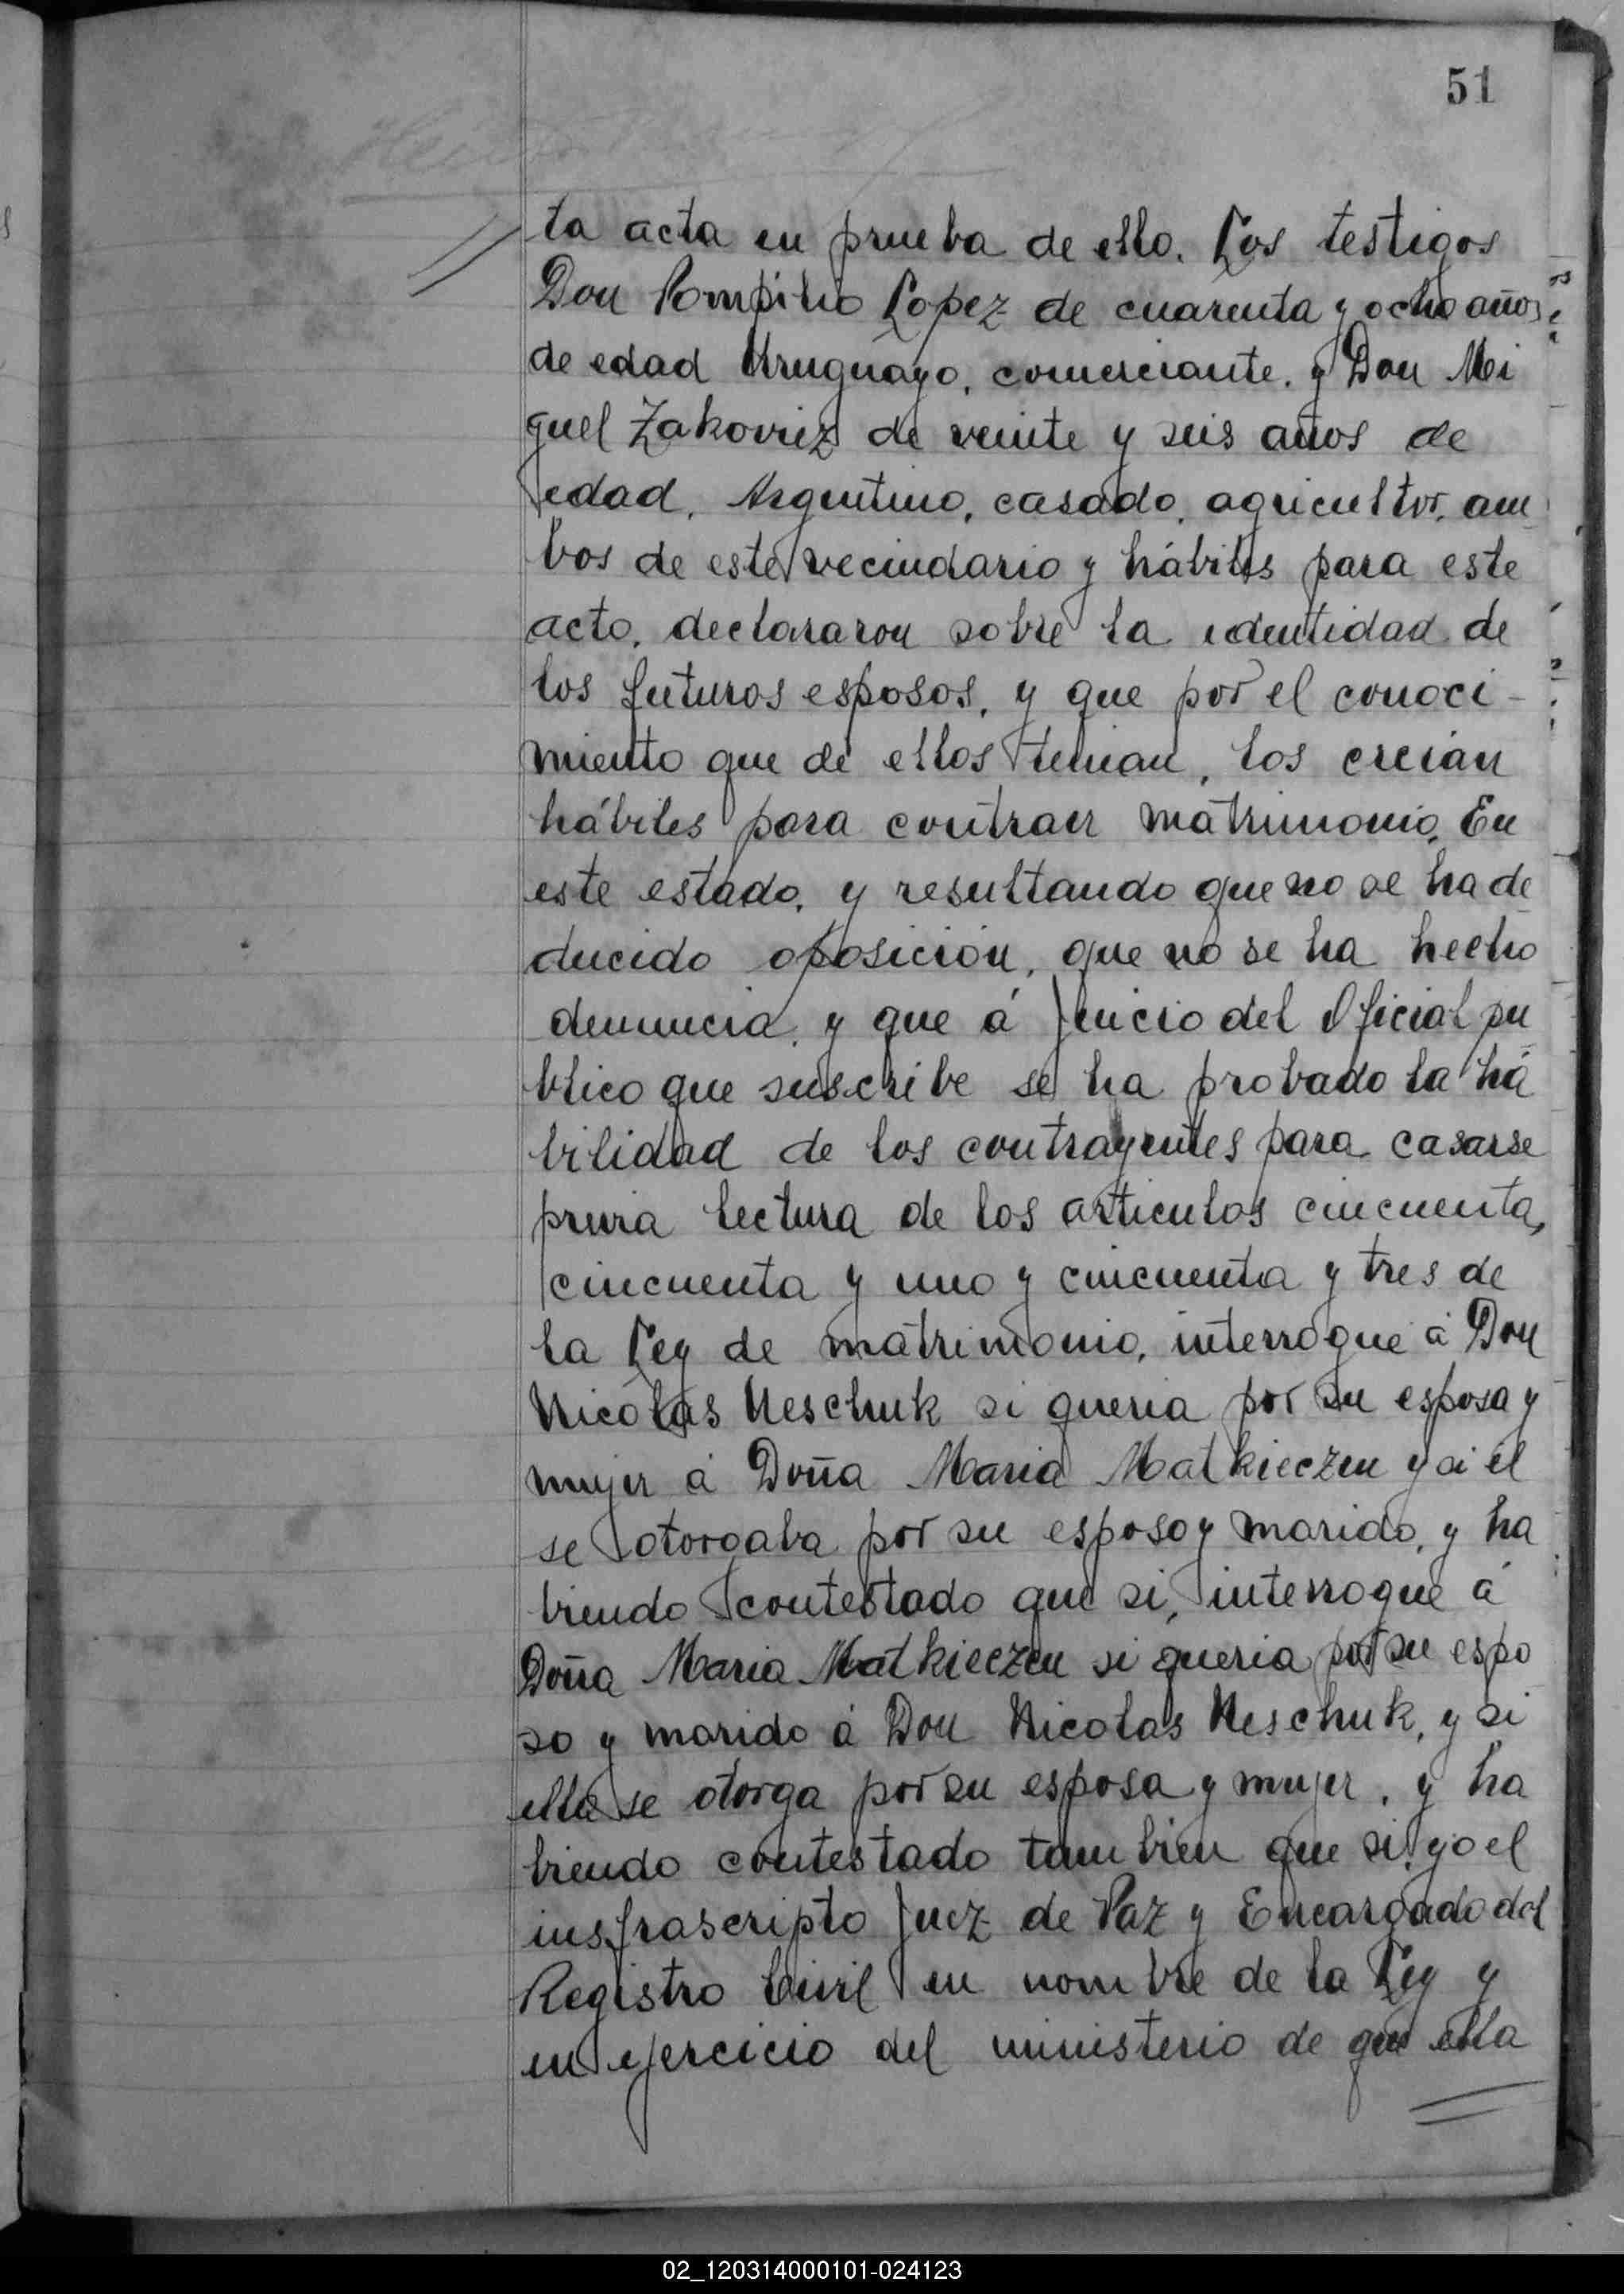 51
ta acta en prueba de ello. Los testigos
Don Pompilio Lopez de cuarenta y ocho años
de edad Uruguayo, comerciante. y Don Mi
guel Zakoviez de veinte y seis años de
edad, Argentino, casado, agricultor, am
bos de este vecindario y hábiles para este
acto, declararon sobre la identidad de
los futuros esposos, y que por el conoci-
miento que de ellos tenian, los creian
hábiles para contraer matrimonio. En
este estado, y resultando que no se ha de
ducido oposición, que no se ha hecho
denuncia, y que á juicio del Oficial pu
blico que suscribe se ha probado la ha
bilidad de los contrayentes para casarse
previa lectura de los articulos cincuenta,
cincuenta y uno y cincuenta y tres de
la Ley de matrimonio, interrogue á Don
Nicolas Neschuk si queria por su esposa y
mujer á Doña Maria Matkieczen y si él
se otorgaba por su esposo y marido, y ha
biendo contestado que si, interrogue á
Doña Maria Matkieczen si queria por su espo
so y marido á Don Nicolas Neschuk, y si
ella se otorga por su esposa y mujer, y ha
biendo contestado tambien que si, yo el
insfrascripto Juez de Paz y Encargado del
Registro Civil en nombre de la Ley y
en ejercicio del ministerio de que ella
02_120314000101-024123